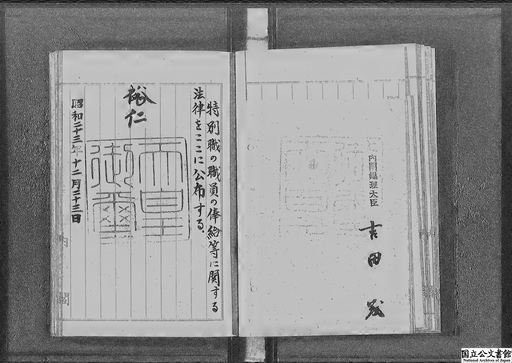 特別職の職員の俸給等に関する
法律をここに公布する。
裕仁
天皇
御璽
昭和二十三年十二月二十三日
内閣
内閣総理大臣
吉田茂
国立公文書館
National Archives of Japan